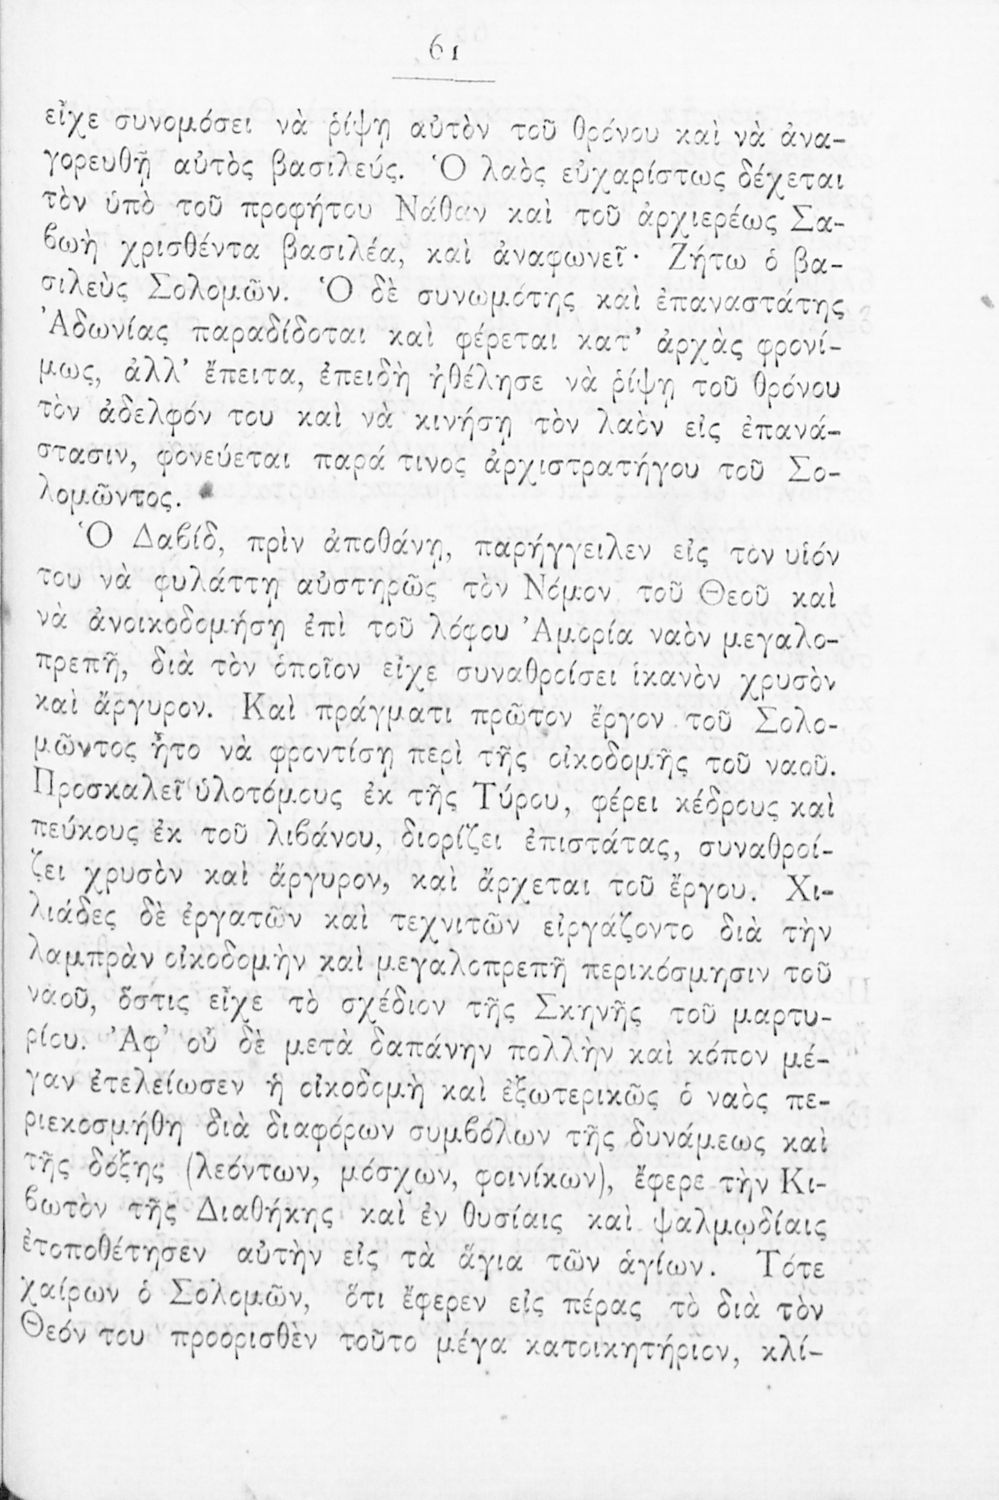 61
εἶχε συνομόσει νὰ ῥίψῃ αὐτὸν τοῦ θρόνου καὶ νὰ ἀνα-
γορευθῇ αὐτὸς βασιλεύς. Ὁ λαὸς εὐχαρίστως δέχεται
τὸν ὑπὸ τοῦ προφήτου Νάθαν καὶ τοῦ ἀρχιερέως Σα-
βωὴ χρισθέντα βασιλέα, καὶ ἀναφωνεῖ· Ζήτω ὁ βα-
σιλεὺς Σολομῶν. Ὁ δὲ συνωμότης καὶ ἐπαναστάτης
Ἀδωνίας παραδίδοται καὶ φέρεται κατ’ ἀρχὰς φρονί-
μως, ἀλλ’ ἔπειτα, ἐπειδὴ ἠθέλησε νὰ ῥίψῃ τοῦ θρόνου
τὸν ἀδελφόν του καὶ νὰ κινήσῃ τὸν λαὸν εἰς ἐπανά-
στασιν, φονεύεται παρά τινος ἀρχιστρατήγου τοῦ Σο-
λομῶντος.
Ὁ Δαβίδ, πρὶν ἀποθάνῃ, παρήγγειλεν εἰς τὸν υἱόν
του νὰ φυλάττῃ αὐστηρῶς τὸν Νόμον τοῦ Θεοῦ καὶ
νὰ ἀνοικοδομήσῃ ἐπὶ τοῦ λόφου Ἀμορία ναὸν μεγαλο-
πρεπῆ, διὰ τὸν ὁποῖον εἶχε συναθροίσει ἱκανὸν χρυσὸν
καὶ ἄργυρον. Καὶ πράγματι πρῶτον ἔργον τοῦ Σολο-
μῶντος ἦτο νὰ φροντίσῃ περὶ τῆς οἰκοδομῆς τοῦ ναοῦ.
Προσκαλεῖ ὑλοτόμους ἐκ τῆς Τύρου, φέρει κέδρους καὶ
πεύκους ἐκ τοῦ λιβάνου, διορίζει ἐπιστάτας, συναθροί-
ζει χρυσὸν καὶ ἄργυρον, καὶ ἄρχεται τοῦ ἔργου. Χι-
λιάδες δὲ ἐργατῶν καὶ τεχνιτῶν εἰργάζοντο διὰ τὴν
λαμπρὰν οἰκοδομὴν καὶ μεγαλοπρεπῆ περικόσμησιν τοῦ
ναοῦ, ὅστις εἶχε τὸ σχέδιον τῆς Σκηνῆς τοῦ μαρτυ-
ρίου. Ἀφ’ οὗ δὲ μετὰ δαπάνην πολλὴν καὶ κόπον μέ-
γαν ἐτελείωσεν ἡ οἰκοδομὴ καὶ ἐξωτερικῶς ὁ ναὸς πε-
ριεκοσμήθη διὰ διαφόρων συμβόλων τῆς δυνάμεως καὶ
τῆς δόξης (λεόντων, μόσχων, φοινίκων), ἔφερε τὴν Κι-
βωτὸν τῆς Διαθήκης καὶ ἐν θυσίαις καὶ ψαλμῳδίαις
ἐτοποθέτησεν αὐτὴν εἰς τὰ ἅγια τῶν ἁγίων. Τότε
χαίρων ὁ Σολομῶν, ὅτι ἔφερεν εἰς πέρας τὸ διὰ τὸν
Θεόν του προορισθὲν τοῦτο μέγα κατοικητήριον, κλί-